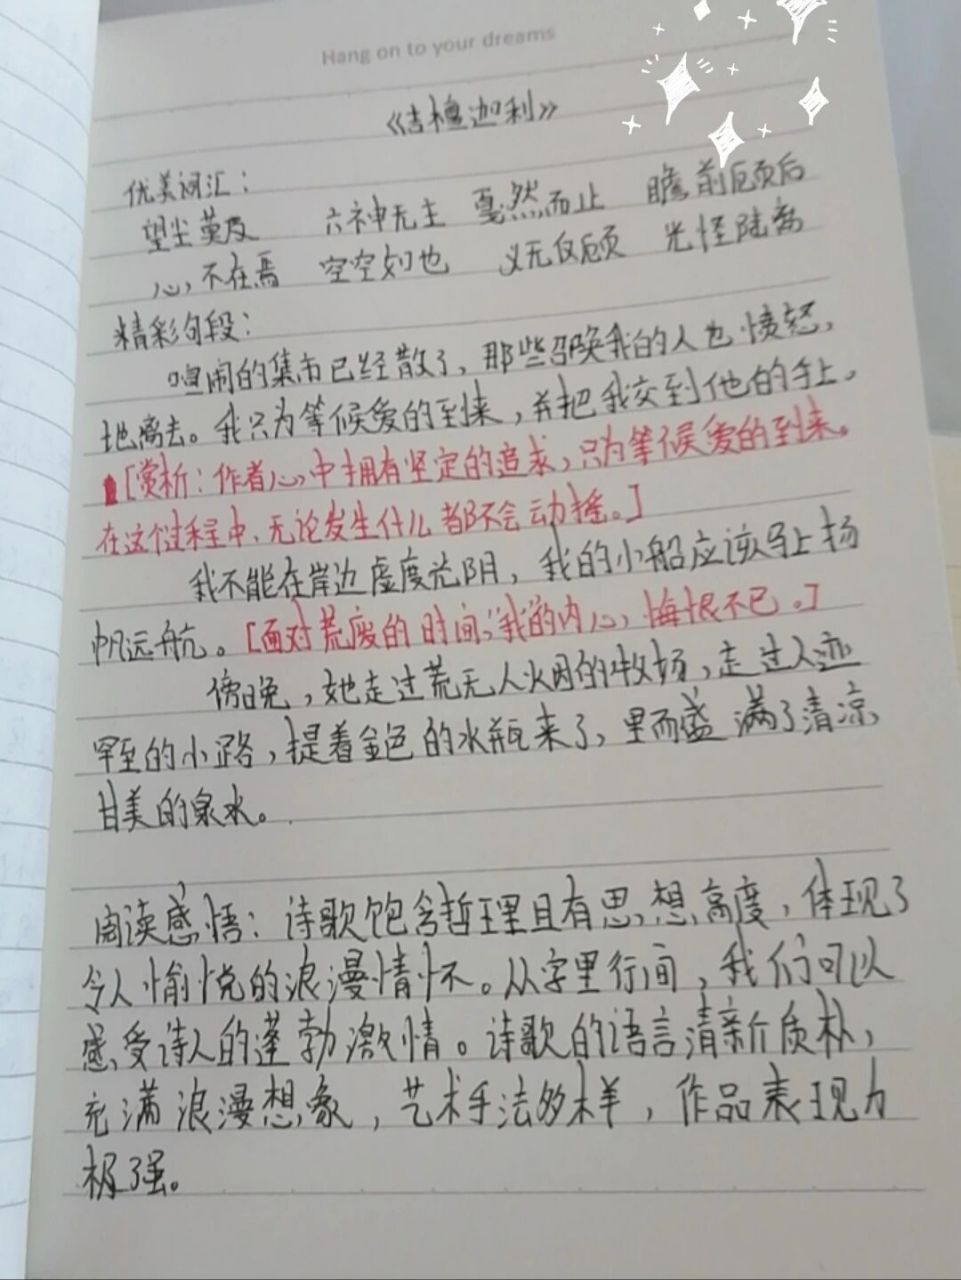 Hang on to your dreams
《吉檀迦利》
优美词汇：
望尘莫及 六神无主 戛然而止 瞻前顾后
心不在焉 空空如也 义无反顾 光怪陆离
精彩句段：
喧闹的集市已经散了，那些召唤我的人也愤怒
地离去。我只为等候爱的到来，并把我交到他的手上。
[赏析：作者心中拥有坚定的追求，只为等候爱的到来。
在这个过程中，无论发生什么都不会动摇。]
我不能在岸边虚度光阴，我的小船应该马上扬
帆远航。[面对荒废的时间，“我”的内心悔恨不已。]
傍晚，她走过荒无人烟的牧场，走过人迹
罕至的小路，提着金色的水瓶来了，里面盛满了清凉
甘美的泉水。
阅读感悟：诗歌饱含哲理且有思想高度，体现了
令人愉悦的浪漫情怀。从字里行间，我们可以
感受诗人的蓬勃激情。诗歌的语言清新质朴，
充满浪漫想象，艺术手法多样，作品表现力
极强。